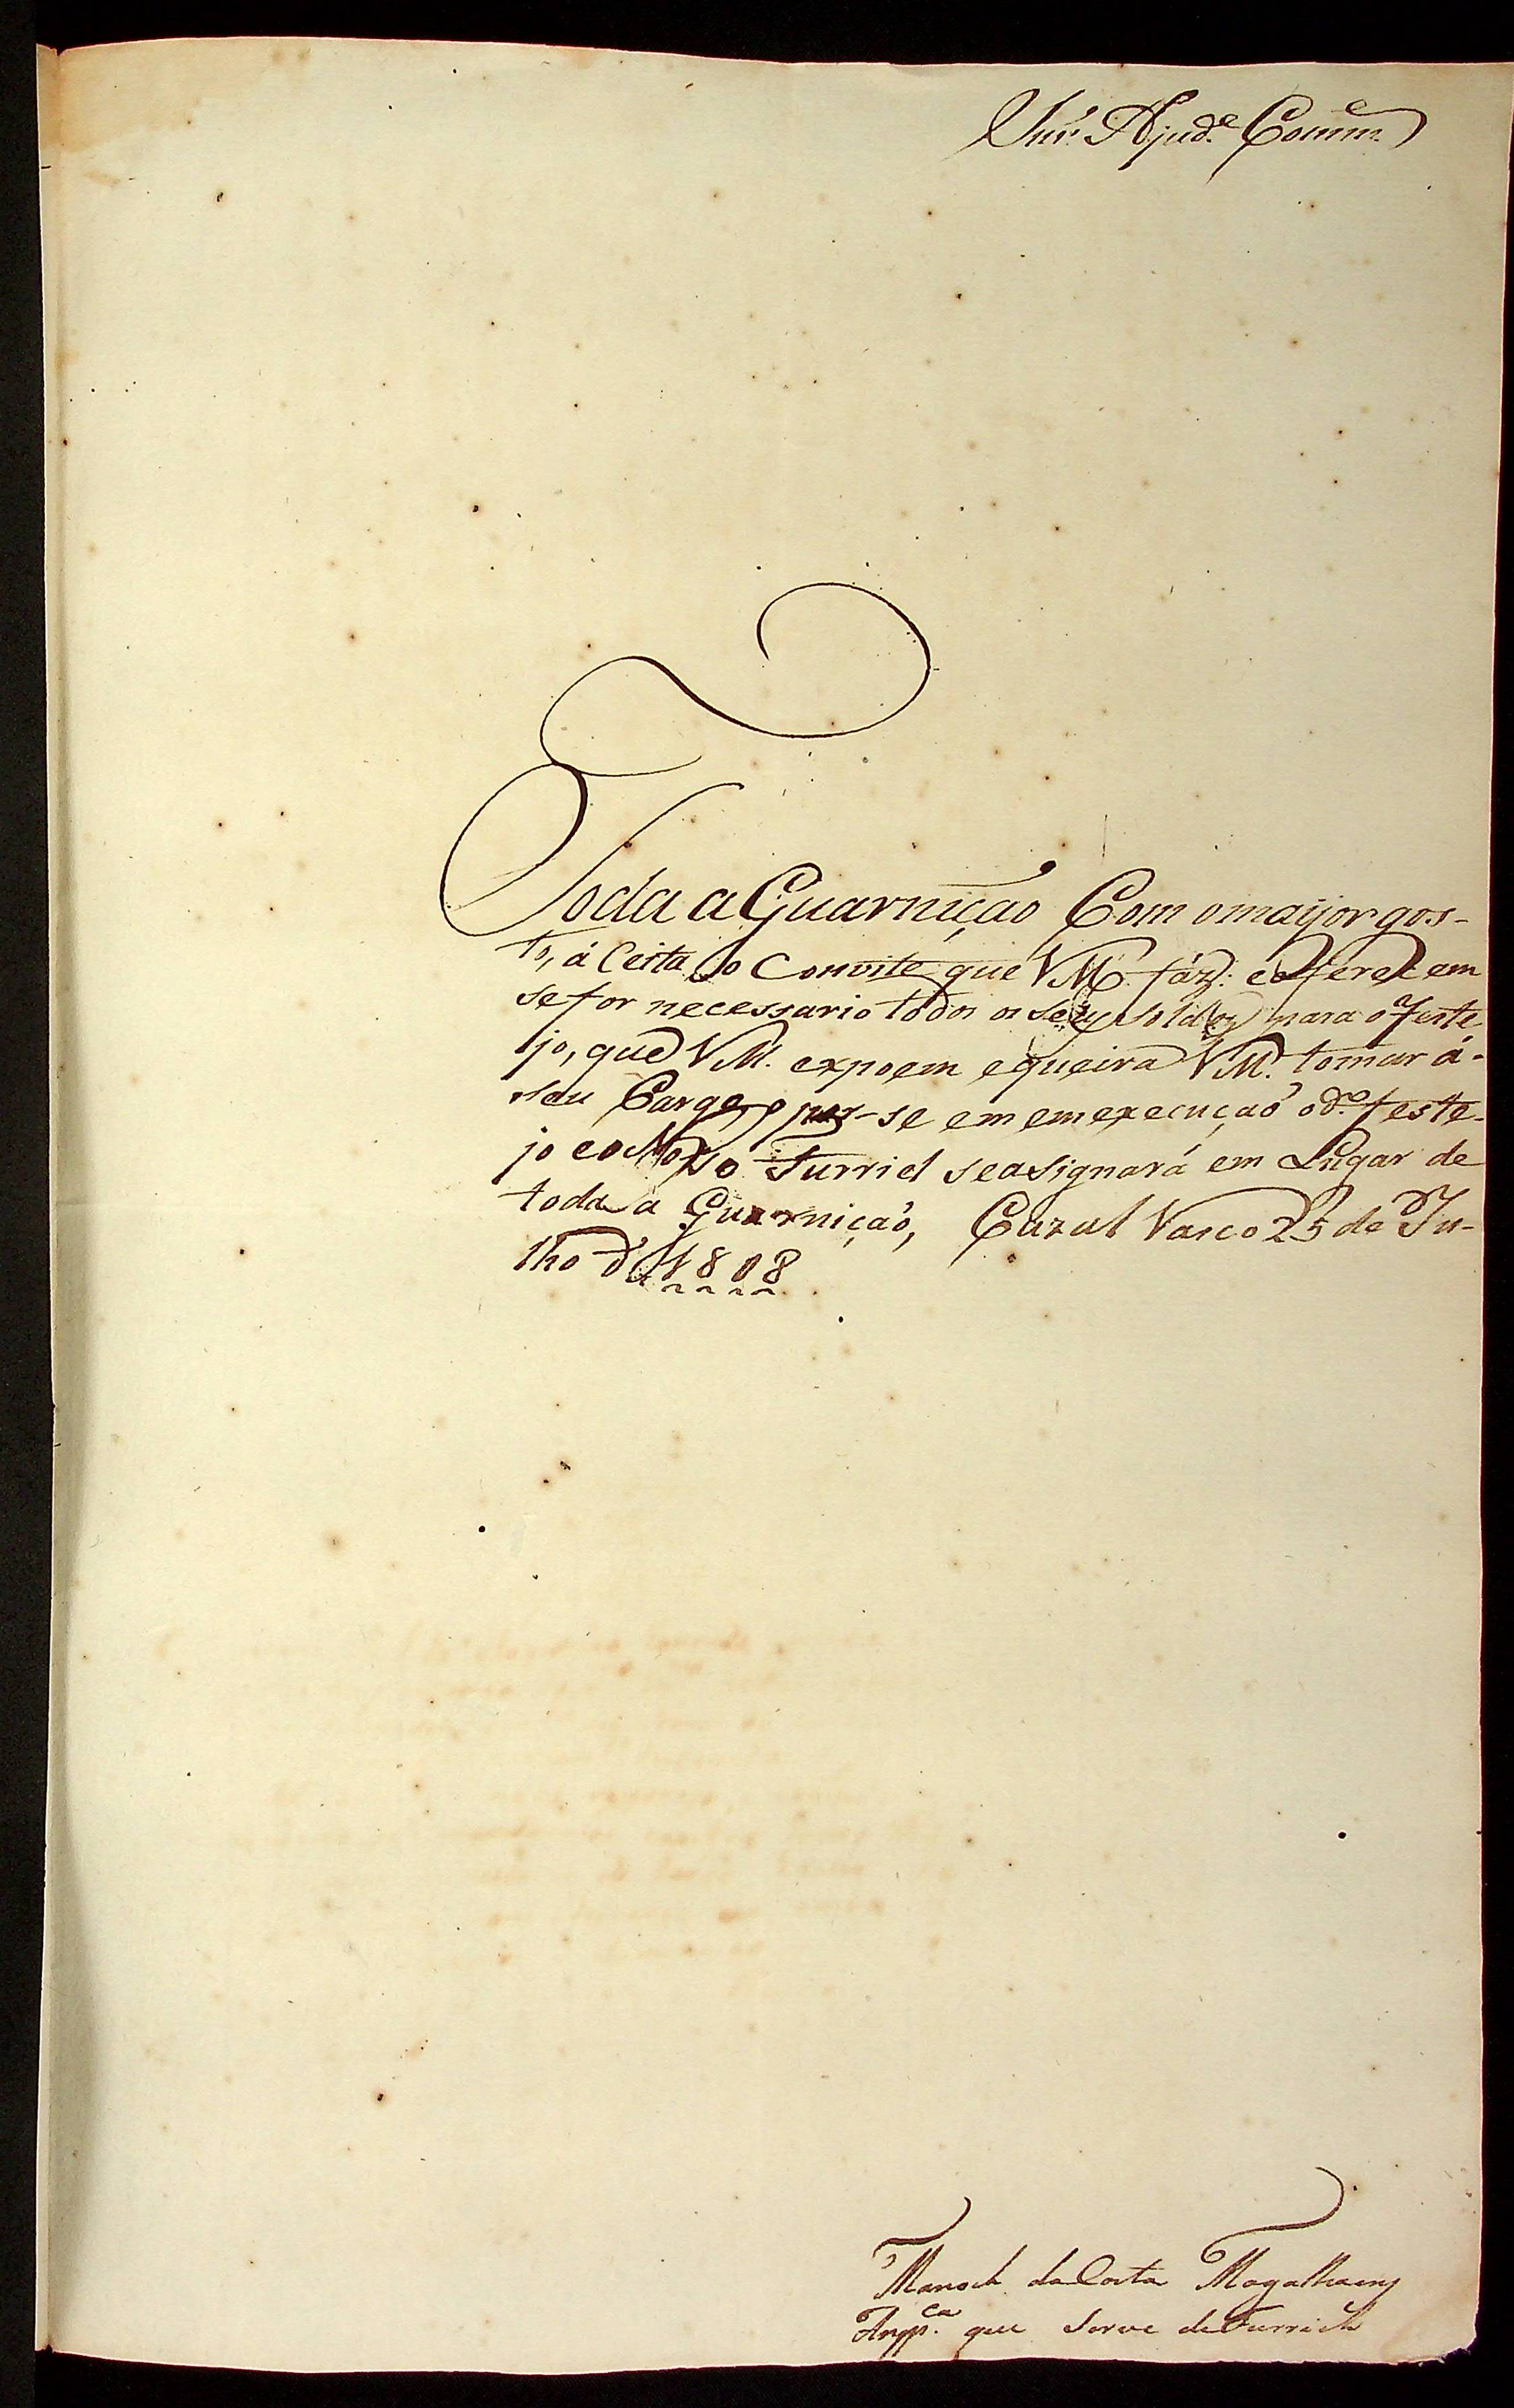 Snr. Ajude. Comme.
Toda a Guarnição Com o maijor gos-
to, á Ceita, o Convite que VM. fáz: e oferecem
se for necessario todos os seus soldos para o Feste
jo, que VM. expoem e queira VM. tomar á-
seu Cargo, e por-se em em execução o do. feste-
jo e o Nosso Furriel se asignará em Lugar de
toda a Guarnição, Cazal Vasco 25 de Ju-
lho de 1808
Manoel da Costa Magalhaens
Anspca. que serve de Furriel